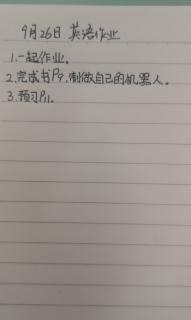 9月26日 英语作业
1.一起作业。
2.完成书P9,制做自己的机器人。
3.预习P11.